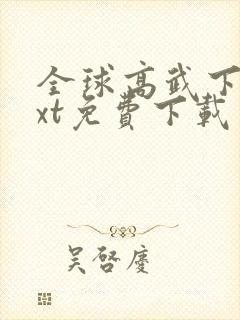 全球高武下
xt免費下載
吴啓慶